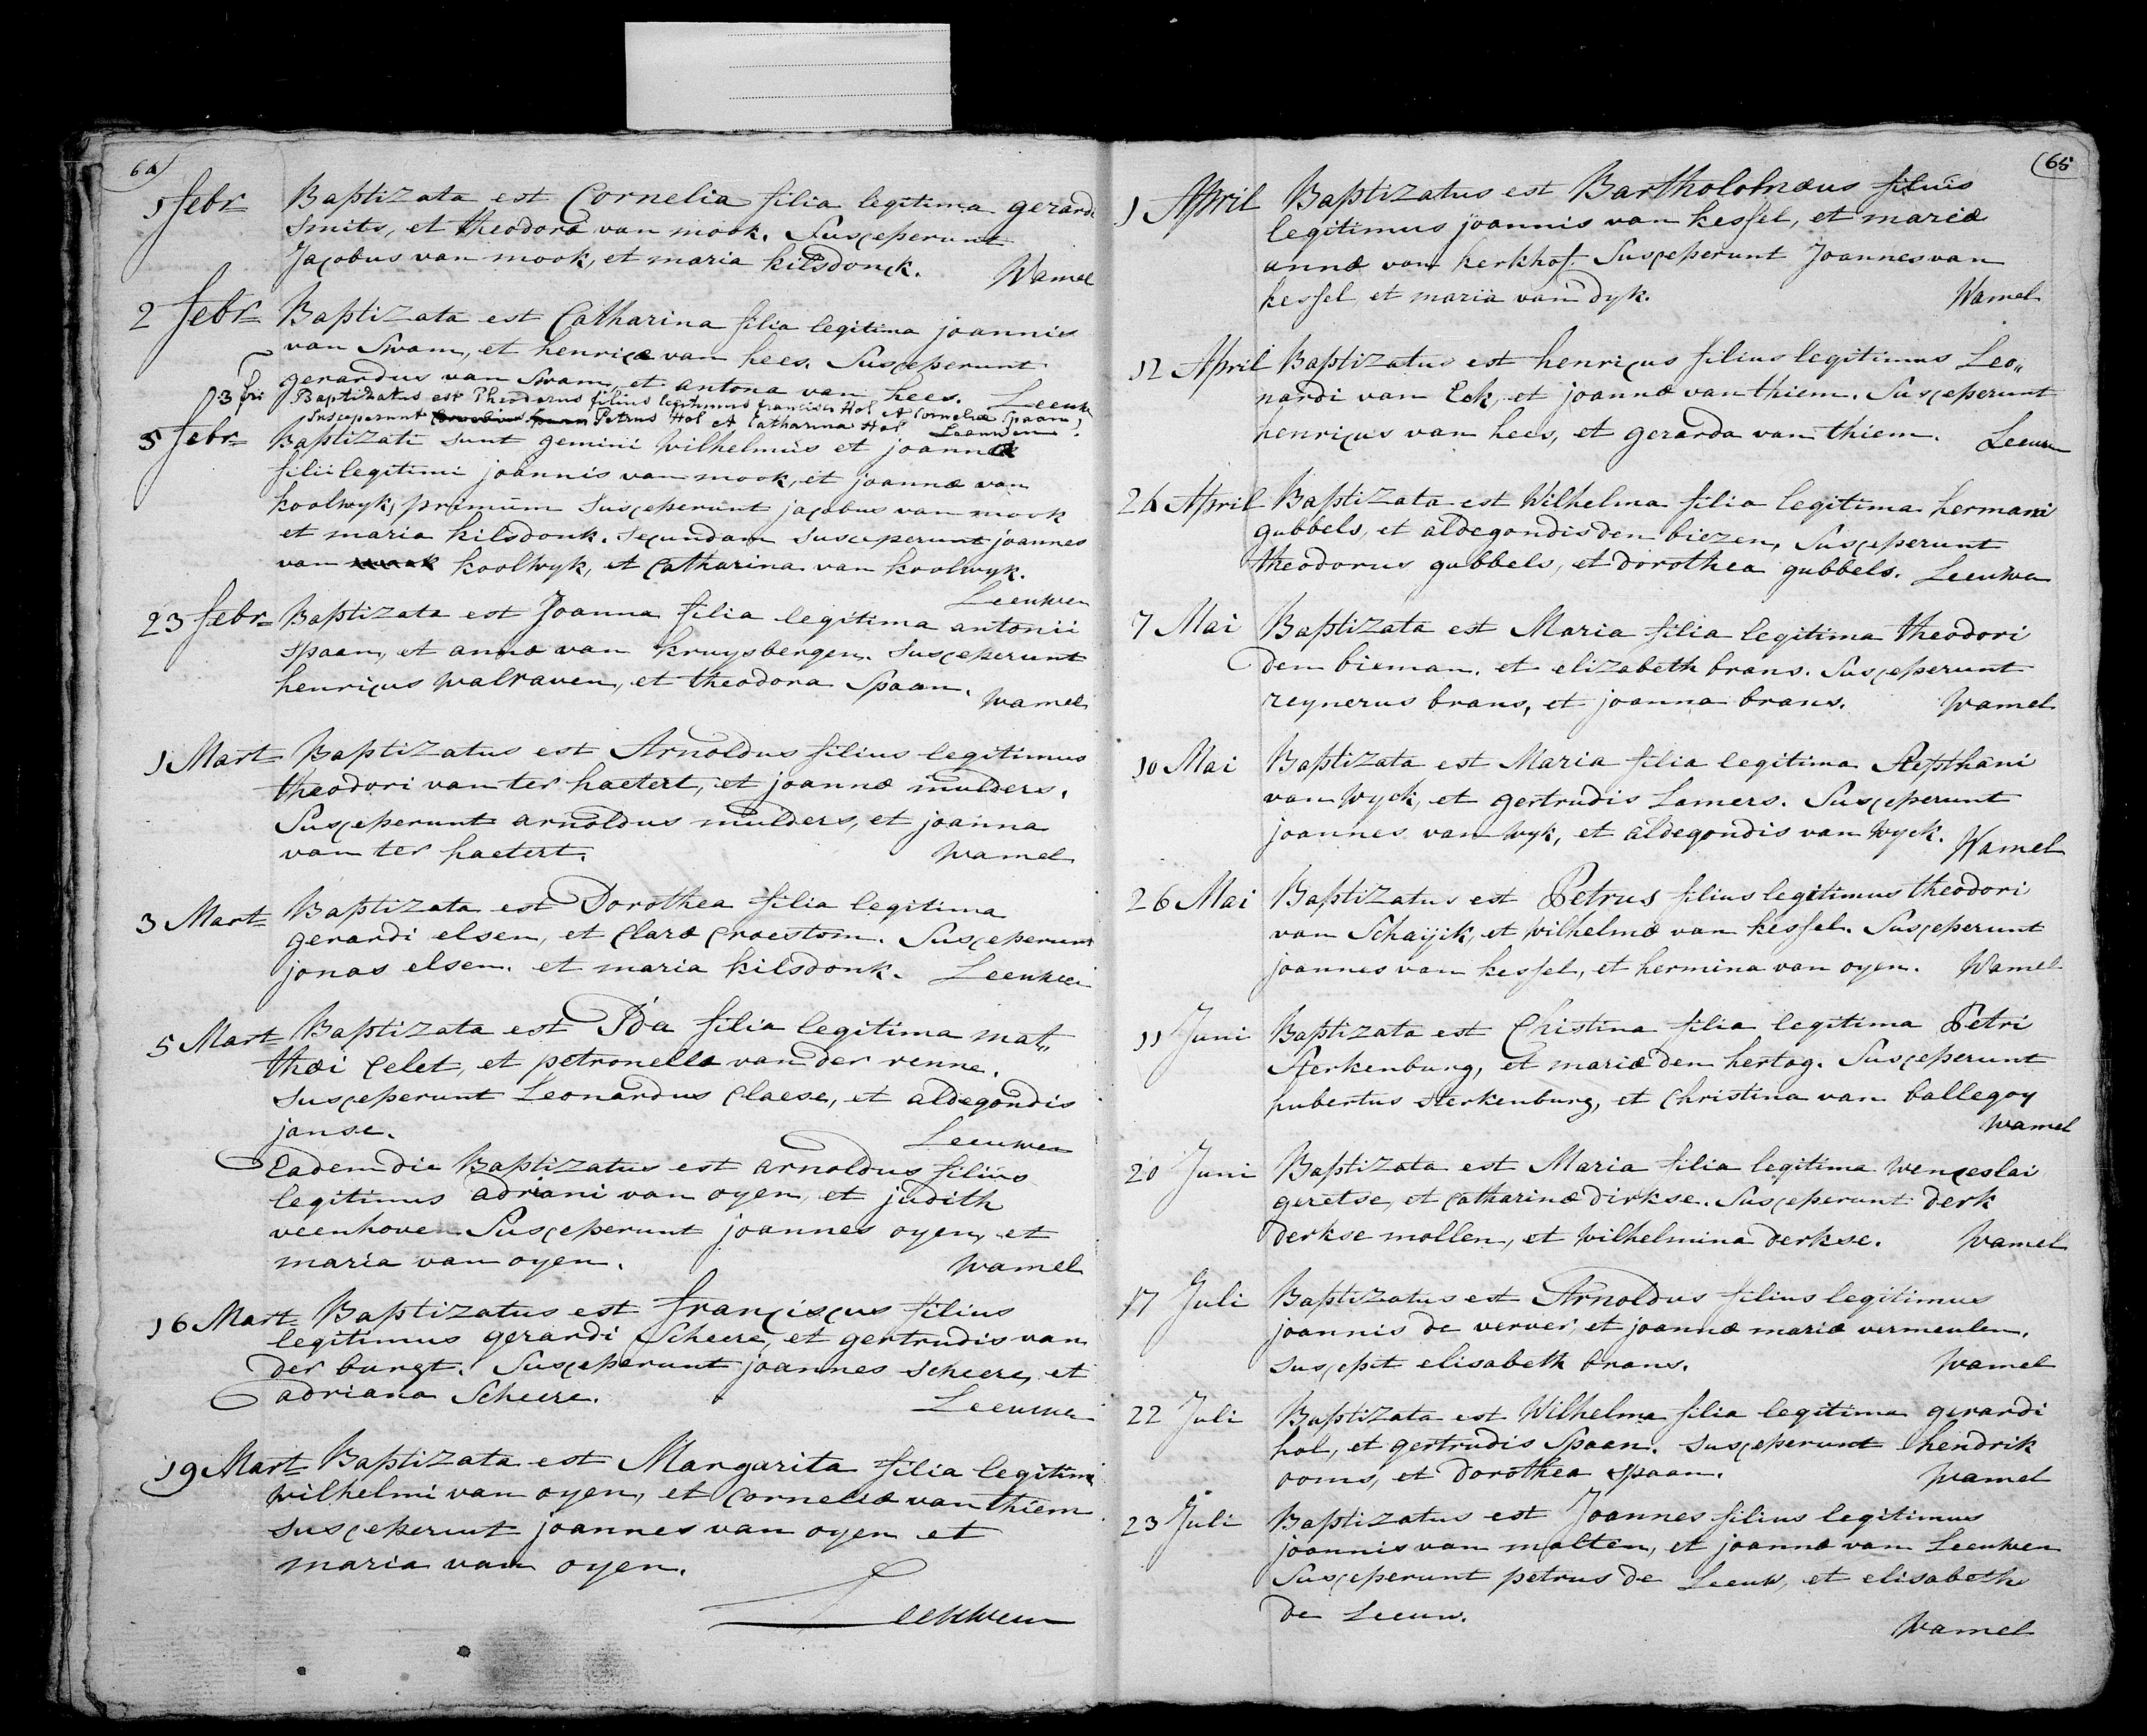 64)
1 febr Baptizata est Cornelia filia legitima gerardi
smits, et theodora van mook. Susceperunt
Jacobus van mook, et maria kilsdonck. Wamel
2 febr Baptizata est Catharina filia legitima joannis
van Swam, et henricæ van hees. Susceperunt
gerardus van Swam, et antona van hees. Leeuw
3 fbr Baptizatus est Theodorus filius legitimus francisci Hol et Cornelia Spaan,
susceperunt Petrus Hol et Catharina Hol Leeuwen.
5 febr Baptizati sunt gemini wilhelmus et joannes
filii legitimi joannis van mook, et joannæ van
koolwyk, primum susceperunt jacobus van mook
et maria kilsdonk. secundam susceperunt joannes
van mook koolwyk, et Catharina van koolwyk.
Leeuwen
23 febr Baptizata est Joanna filia legitima antonii
spaan, et annæ van kruysbergen. susceperunt
henricus walraven, et theodora Spaan. wamel
1 Mart Baptizatus est Arnoldus filius legitimus
theodori van ter haetert, et joannæ mulders.
Susceperunt arnoldus mulders, et joanna
van ter haetert. wamel
3 Mart Baptizata est Dorothea filia legitima
gerardi elsen, et Claræ Craestom. Susceperunt
jonas elsen. et maria kilsdonk. Leeuwen
5 Mart Baptizata est Ida filia legitima mat„
thæi Celet, et petronella van der renne.
susceperunt Leonardus Claese, et aldegondis
janse. Leeuwen
Eadem die Baptizatus est arnoldus filius
legitimus adriani van oyen, et judith
veenhoven Susceperunt joannes oyen, et
maria van oyen. wamel
16 Mart Baptizatus est franciscus filius
legitimus gerardi Scheere, et gertrudis van
der burgt. Susceperunt joannes scheere, et
adriana Scheere. Leeuwen
19 Mart Baptizata est Margarita filia legitima
wilhelmi van oyen, et Corneliæ van thiem
susceperunt joannes van oyen et
maria van oyen.
Leeuwen
(65
1 April Baptizatus est Bartholomæus filius
legitimus joannis van kessel, et mariæ
annæ van kerkhof. Susceperunt Joannes van
kessel, et maria van dyk. Wamel
12 April Baptizatus est henricus filius legitimus Leo„
nardi van Eck, et joannæ van thiem. Susceperunt
henricus van hees, et gerarda van thiem. Leeuw
24 April Baptizata est Wilhelma filia legitima hermani
gubbels, et aldegondis den biezen, Susceperunt
theodorus gubbels, et dorothea gubbels. Leeuwen
7 Mai Baptizata est Maria filia legitima theodori
den bieman. et elizabeth brans. Susceperunt
reynerus brans, et joanna brans. wamel
10 Mai Baptizata est Maria filia legitima Stepthani
van wyck, et gertrudis Lamers. Susceperunt
joannes van wyk, et aldegondis van wyck. Wamel
26 Mai Baptizatus est Petrus filius legitimus theodori
van Schaijik, et wilhelmæ van kessel. Susceperunt
joannes van kessel, et hermina van oyen. Wamel
11 Juni Baptizata est Christina filia legitima Petri
Sterkenburg, et mariæ den hertog. Susceperunt
hubertus sterkenburg, et Christina van ballegoy
wamel
20 Juni Baptizata est Maria filia legitima wenceslai
geretse, et Catharinæ dirkse. Susceperunt derk
derkse mollen, et wilhelmina derkse. wamel
17 Juli Baptizatus est Arnoldus filius legitimus
joannis de verver, et joannæ mariæ vermeulen.
suscepit elisabeth brans. wamel
22 Juli Baptizata est Wilhelma filia legitima gerardi
hol, et gertrudis Spaan. susceperunt hendrik
ooms, et dorothea spaan. wamel
23 Juli Baptizatus est Joannes filius legitimus
joannis van malten, et joannæ van Leeuwen
Susceperunt petrus de Leeuw, et elisabeth
de Leeuw.
wamel